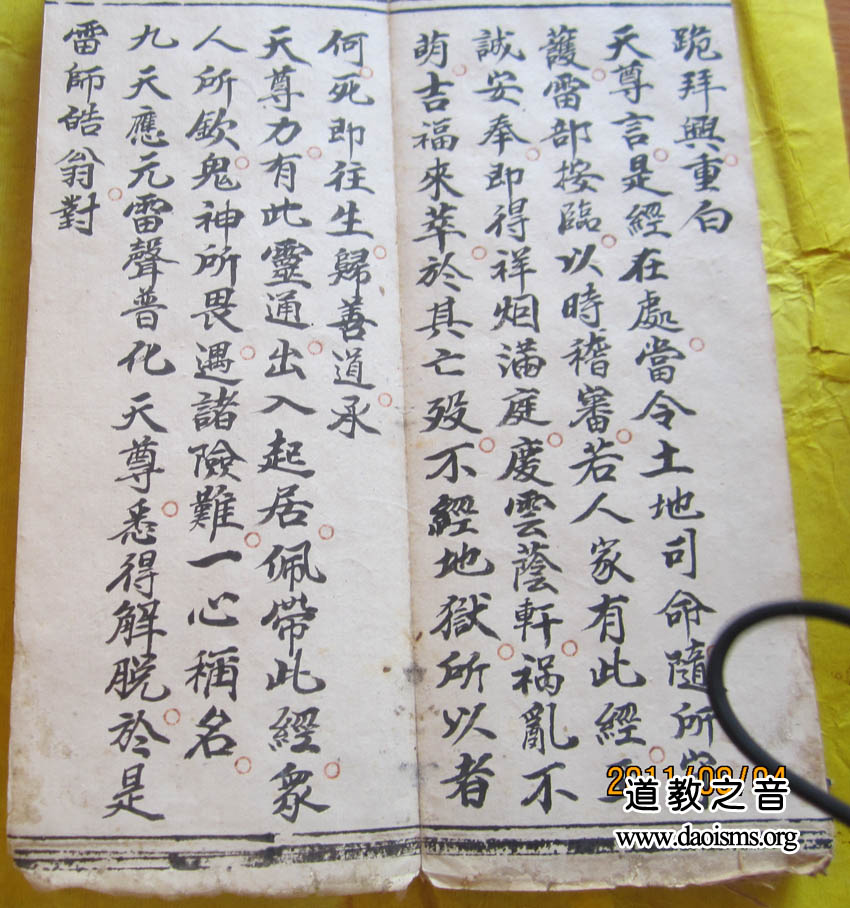 跪拜興重白
天尊言是經在處當令土地司命隨所守
護雷部按臨以時稽審若人家有此經
誠安奉即得祥烟滿庭慶雲蔭軒禍亂不
萌吉福來萃於其亡歿不經地獄所以者
何死即往生歸善道承
天尊力有此靈通出入起居佩帶此經衆
人所欽鬼神所畏遇諸險難一心稱名
九天應元雷聲普化天尊悉得解脫於是
雷師皓翁對
道教之音
www.daoisms.org